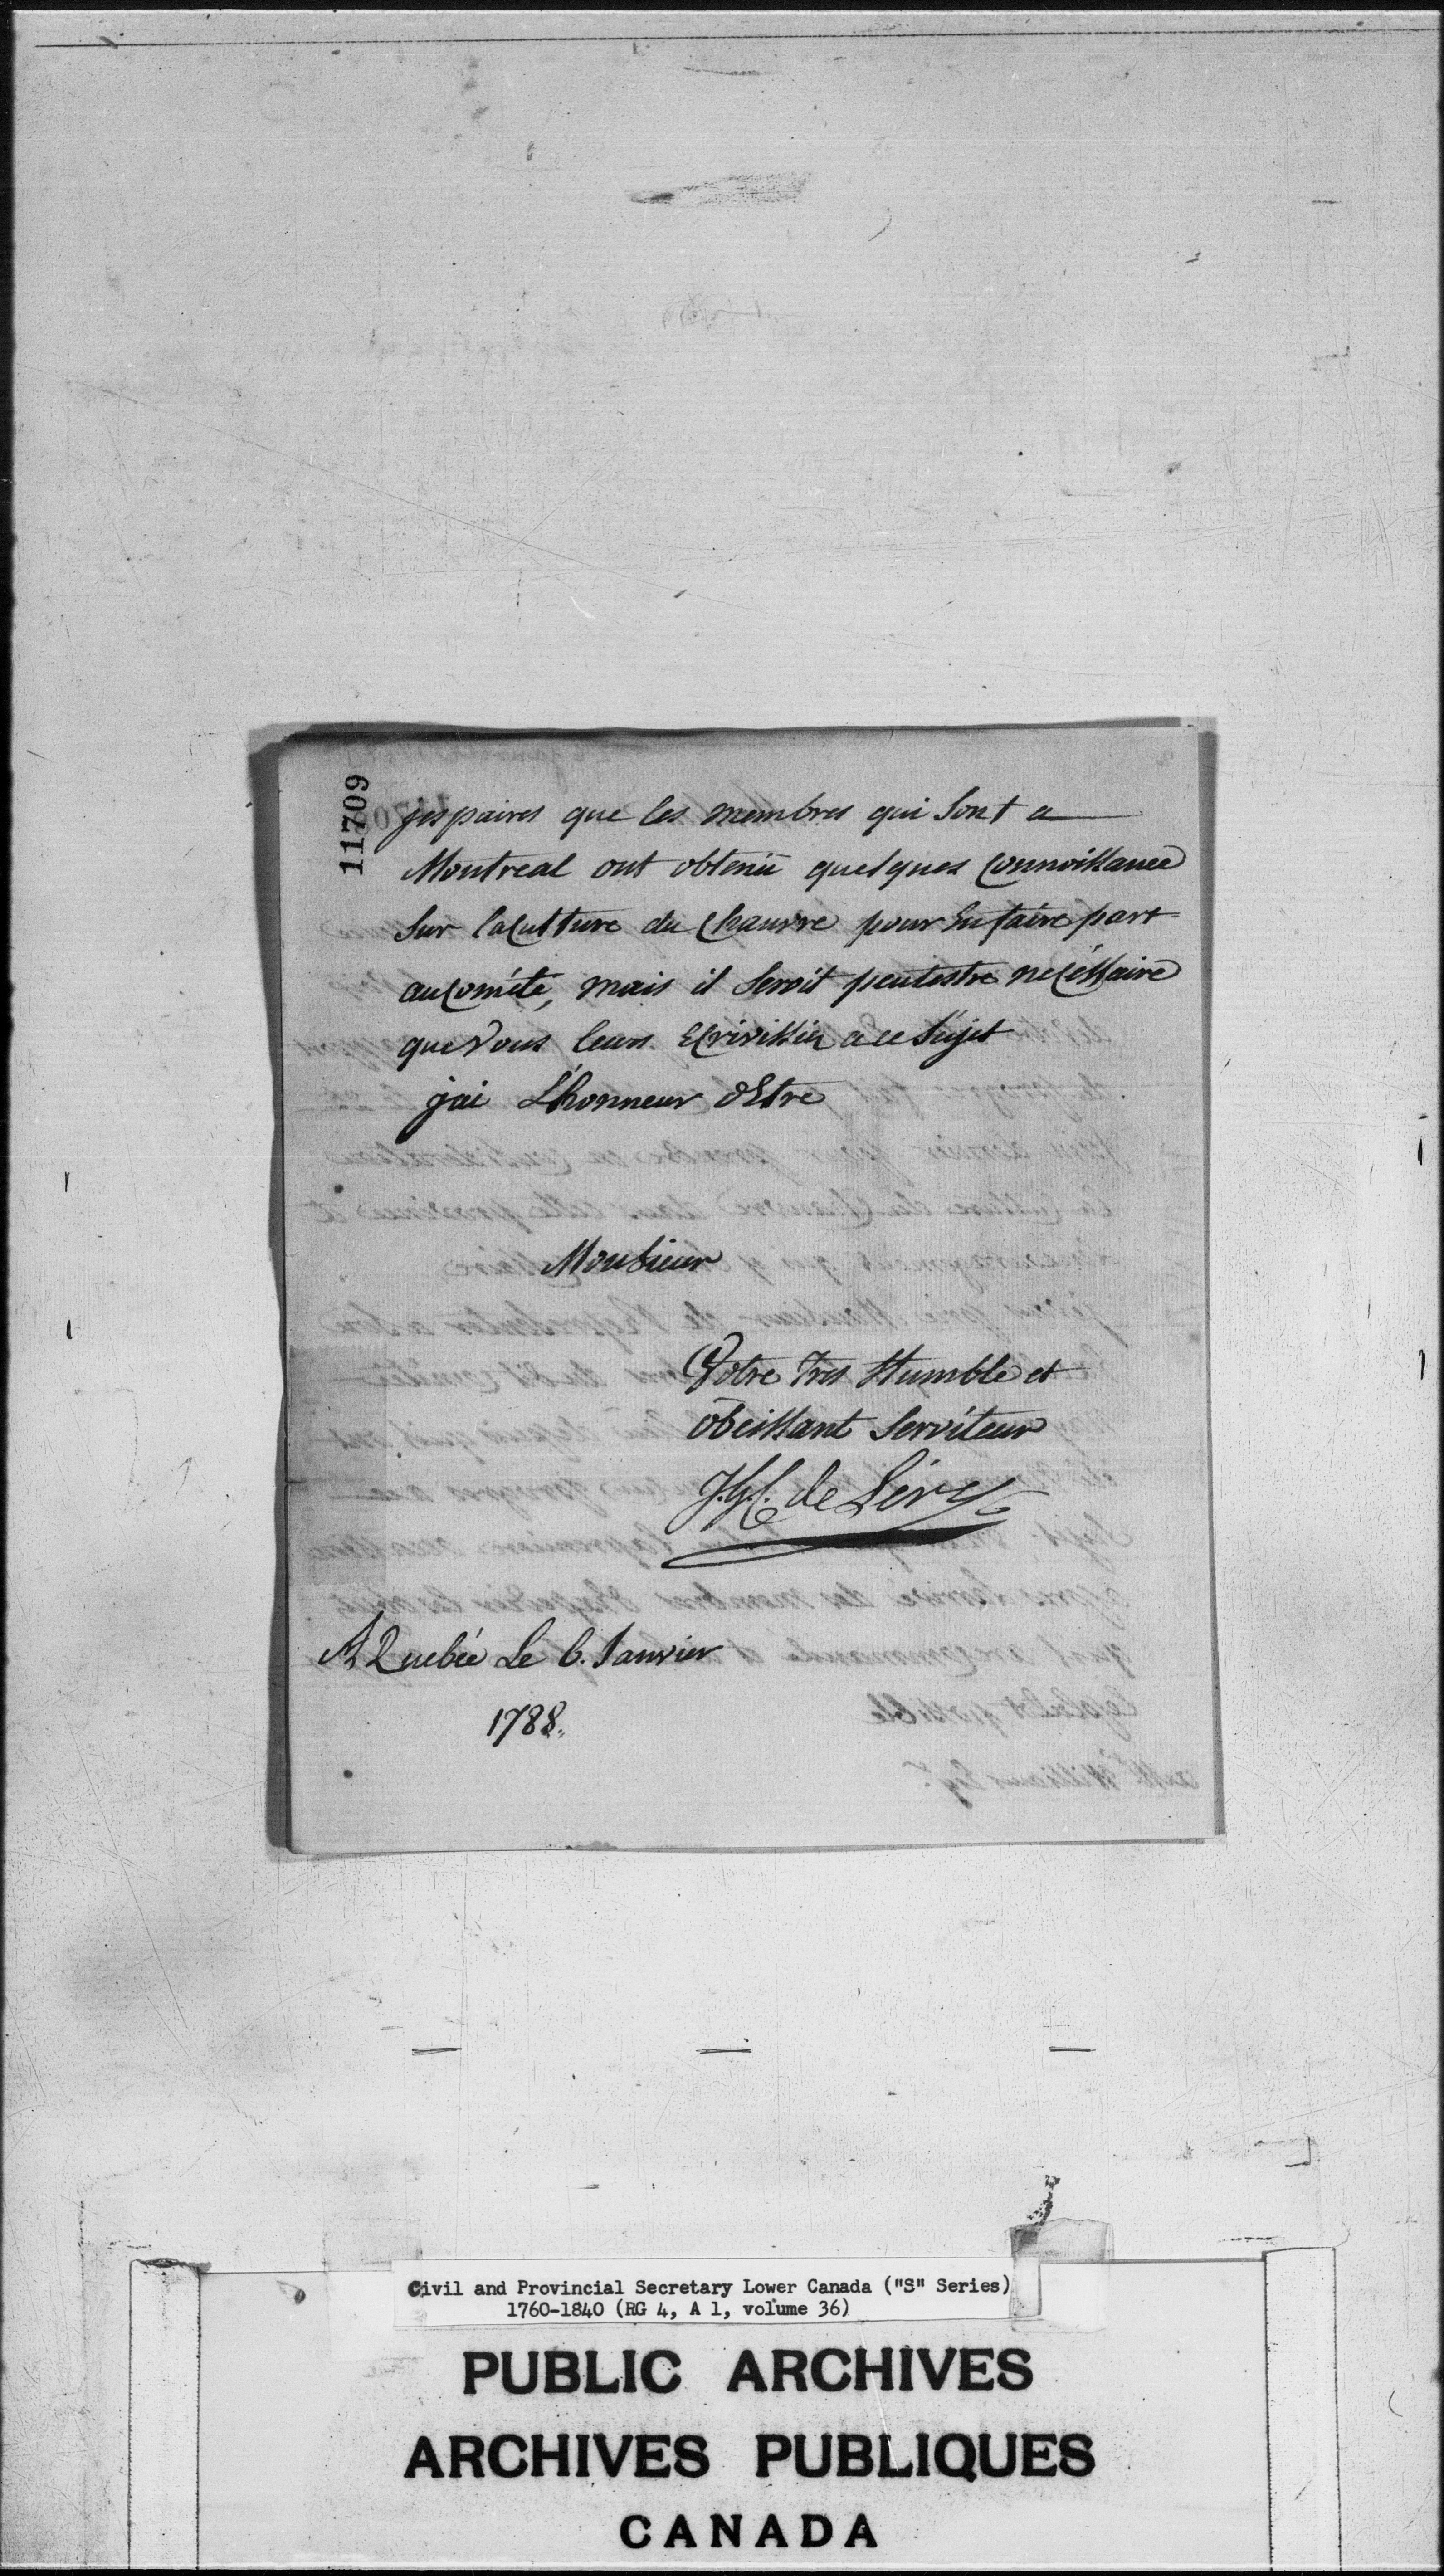 11709
jespaires que les membres qui sont a
Montreal ont obtenü quelques connoissance
sur la culture du chanvre pour en faire part
au comité, mais il seroit peutestre necéssaire
que vous leurs Ecrivissiez a ce sujet
jai L'honneur dEtre
Monsieur
Votre Tres Humble et
obeissant serviteur
J.G.C. de Lery
A Quebéc Le 6. Janvier
1788.
Civil and Provincial Secretary Lower Canada ("S" Series)
1760-1840 (RG 4, A 1, volume 36)
PUBLIC ARCHIVES
ARCHIVES PUBLIQUES
CANADA